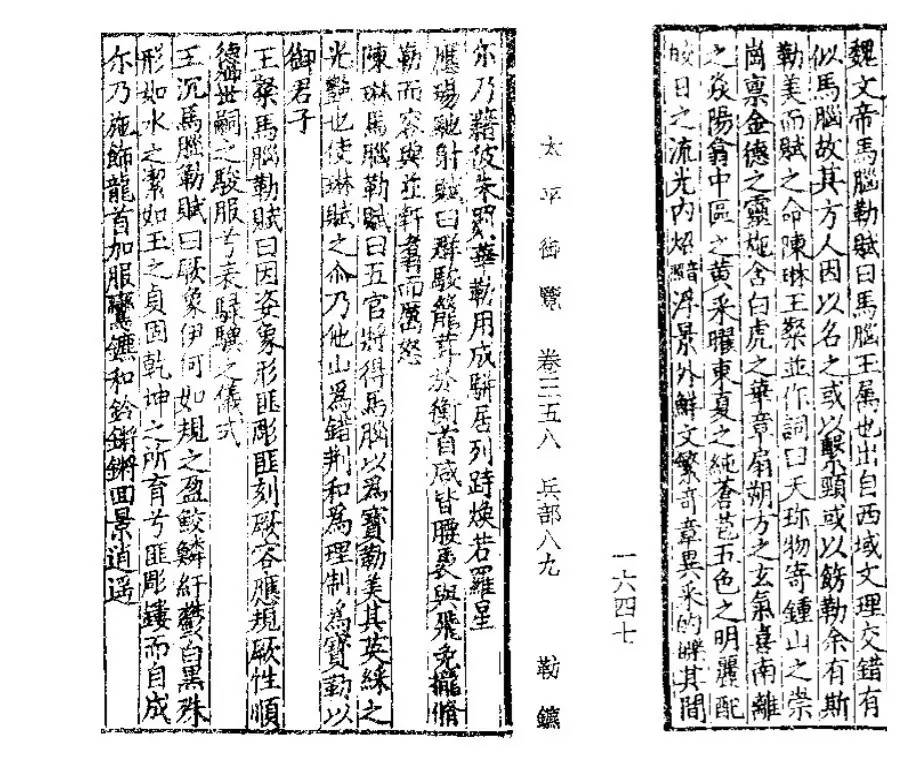 魏文帝馬腦勒賦曰馬腦玉属也出自西域文理交錯有
似馬腦故其方人因以名之或以繫頸或以飭勒余有斯
勒美而賦之命陳琳王粲並作詞曰天珎物寄鍾山之崇
崗禀金德之靈施含白虎之華章扇朔方之玄氣喜南離
之焱陽翕中區之黄采曜東夏之純蒼苞五色之明麗配
皎日之流光内炤黯浮景外鮮文繁竒章異采的皪其間
太平御覽 卷三五八 兵部八九 勒 鑣
一六四七
尓乃藉彼朱罽華勒用成駢居列跱煥若羅星
應瑒馳射賦曰群駿籠茸於衡首咸皆腰褭與飛兔擺脩
勒而容與並軒翥而厲怒
陳琳馬腦勒賦曰五官將得馬腦以爲寳勒美其英綵之
光艷也使琳賦之尒乃他山爲錯荆和爲理制爲寳勒以
御君子
王粲馬腦勒賦曰因姿象形匪彫匪刻厥容應規厥性順
德御世嗣之駿服兮表騄驥之儀式
王沉馬腦勒賦曰厥象伊何如規之盈鮫鱗紆鬱白黒殊
形如水之潔如玉之貞固乾坤之所育兮匪彫鏤而自成
尓乃施飾龍首加服鸞鑣和鈴鏘鏘回景逍遥